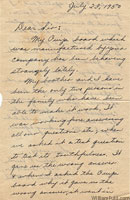 July 23, 1950
Dear Sirs:
My Ouija board which
was manufactured by your
company has been behaving
strangely lately.
My brother and I have
been the only two persons in
the family who have been
able to make it work. It
was working fine answering
all our questions etc., when
we asked it a test question
to test its truthfulness. It
gave us the wrong answer
& when I asked the Ouija
board why it gave us the
wrong answer, it went in